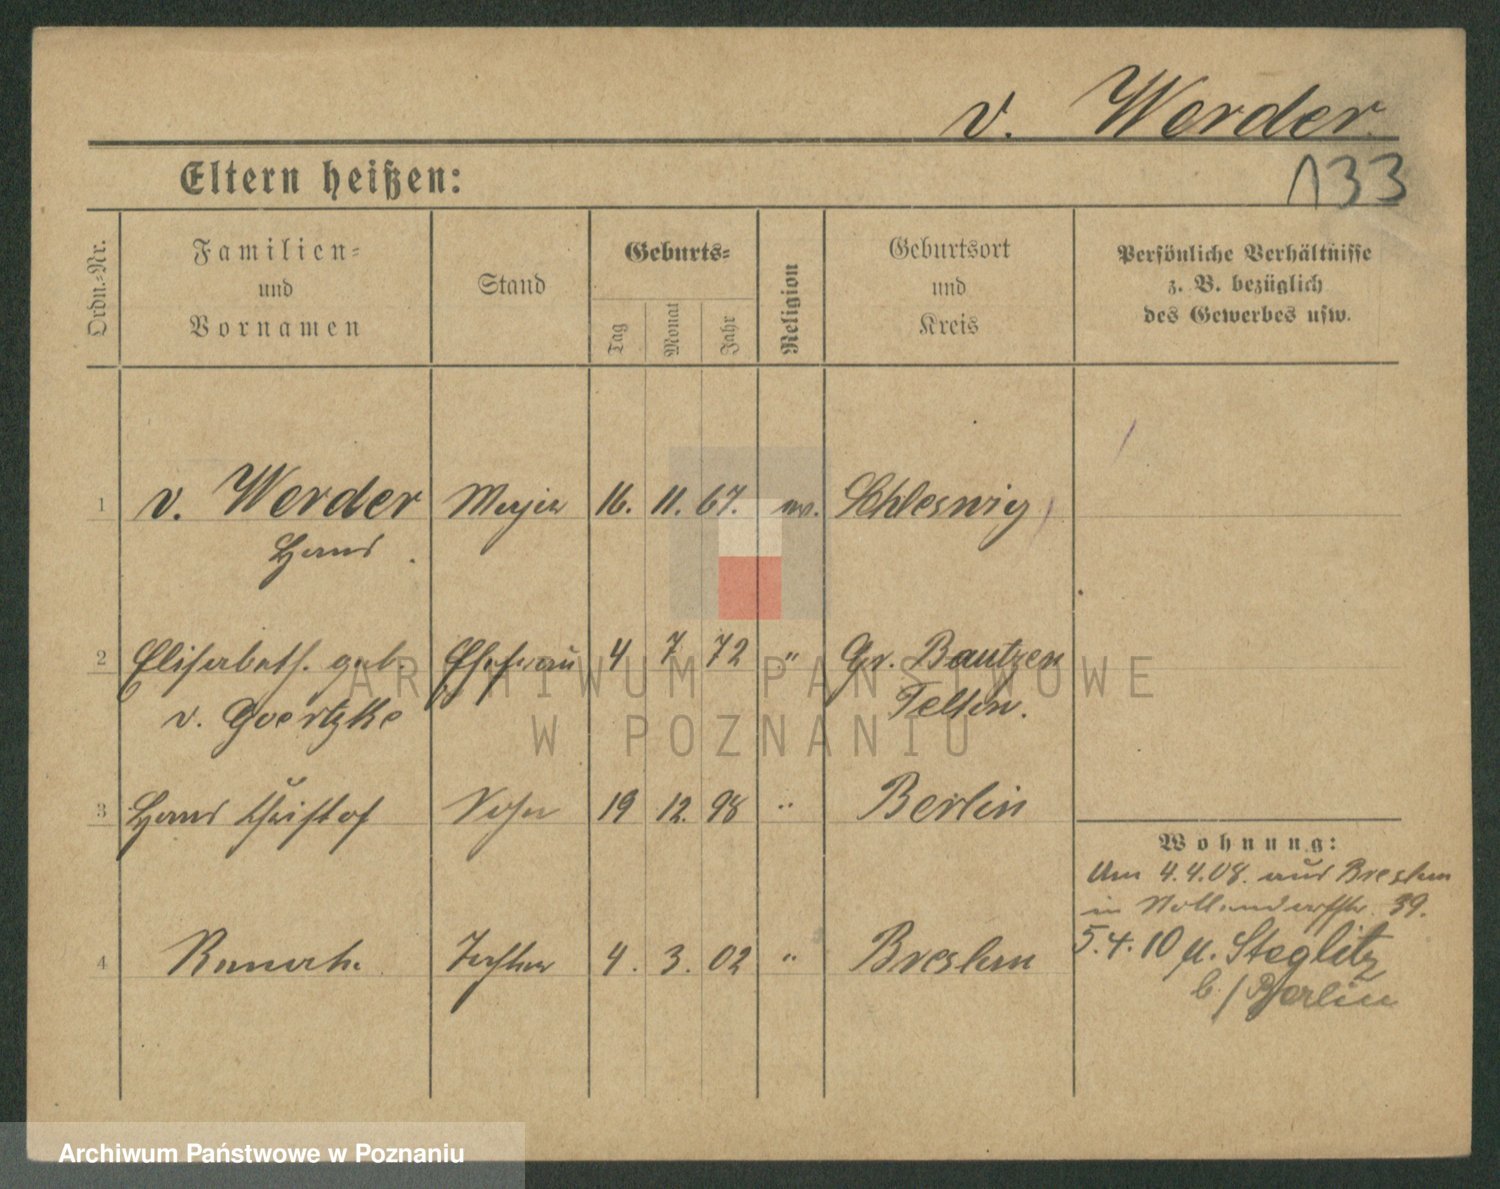 v. Werder
133
Eltern heißen:
Ordn.-Nr.
Familien-
und
Vornamen
Stand
Geburts-
Tag
Monat
Jahr
Religion
Geburtsort
und
Kreis
Persönliche Verhältnisse
z. B. bezüglich
des Gewerbes usw.
1 v. Werder Major 16. 11. 67. ev. Schleswig
Hans
2 Elisabeth geb. Ehefrau 4 7 72 " Gr. Bautzen
v. Goertzke Teltow.
3 Hans Christof Sohn 19 12. 98 " Berlin
Wohnung:
Am 4.4.08. aus Breslau
in 39.
4 Renate Tochter 4. 3. 02 " Breslau
5.4.10 u. Steglitz
b/Berlin
ARCHIWUM PAŃSTWOWE
W POZNANIU
Archiwum Państwowe w Poznaniu